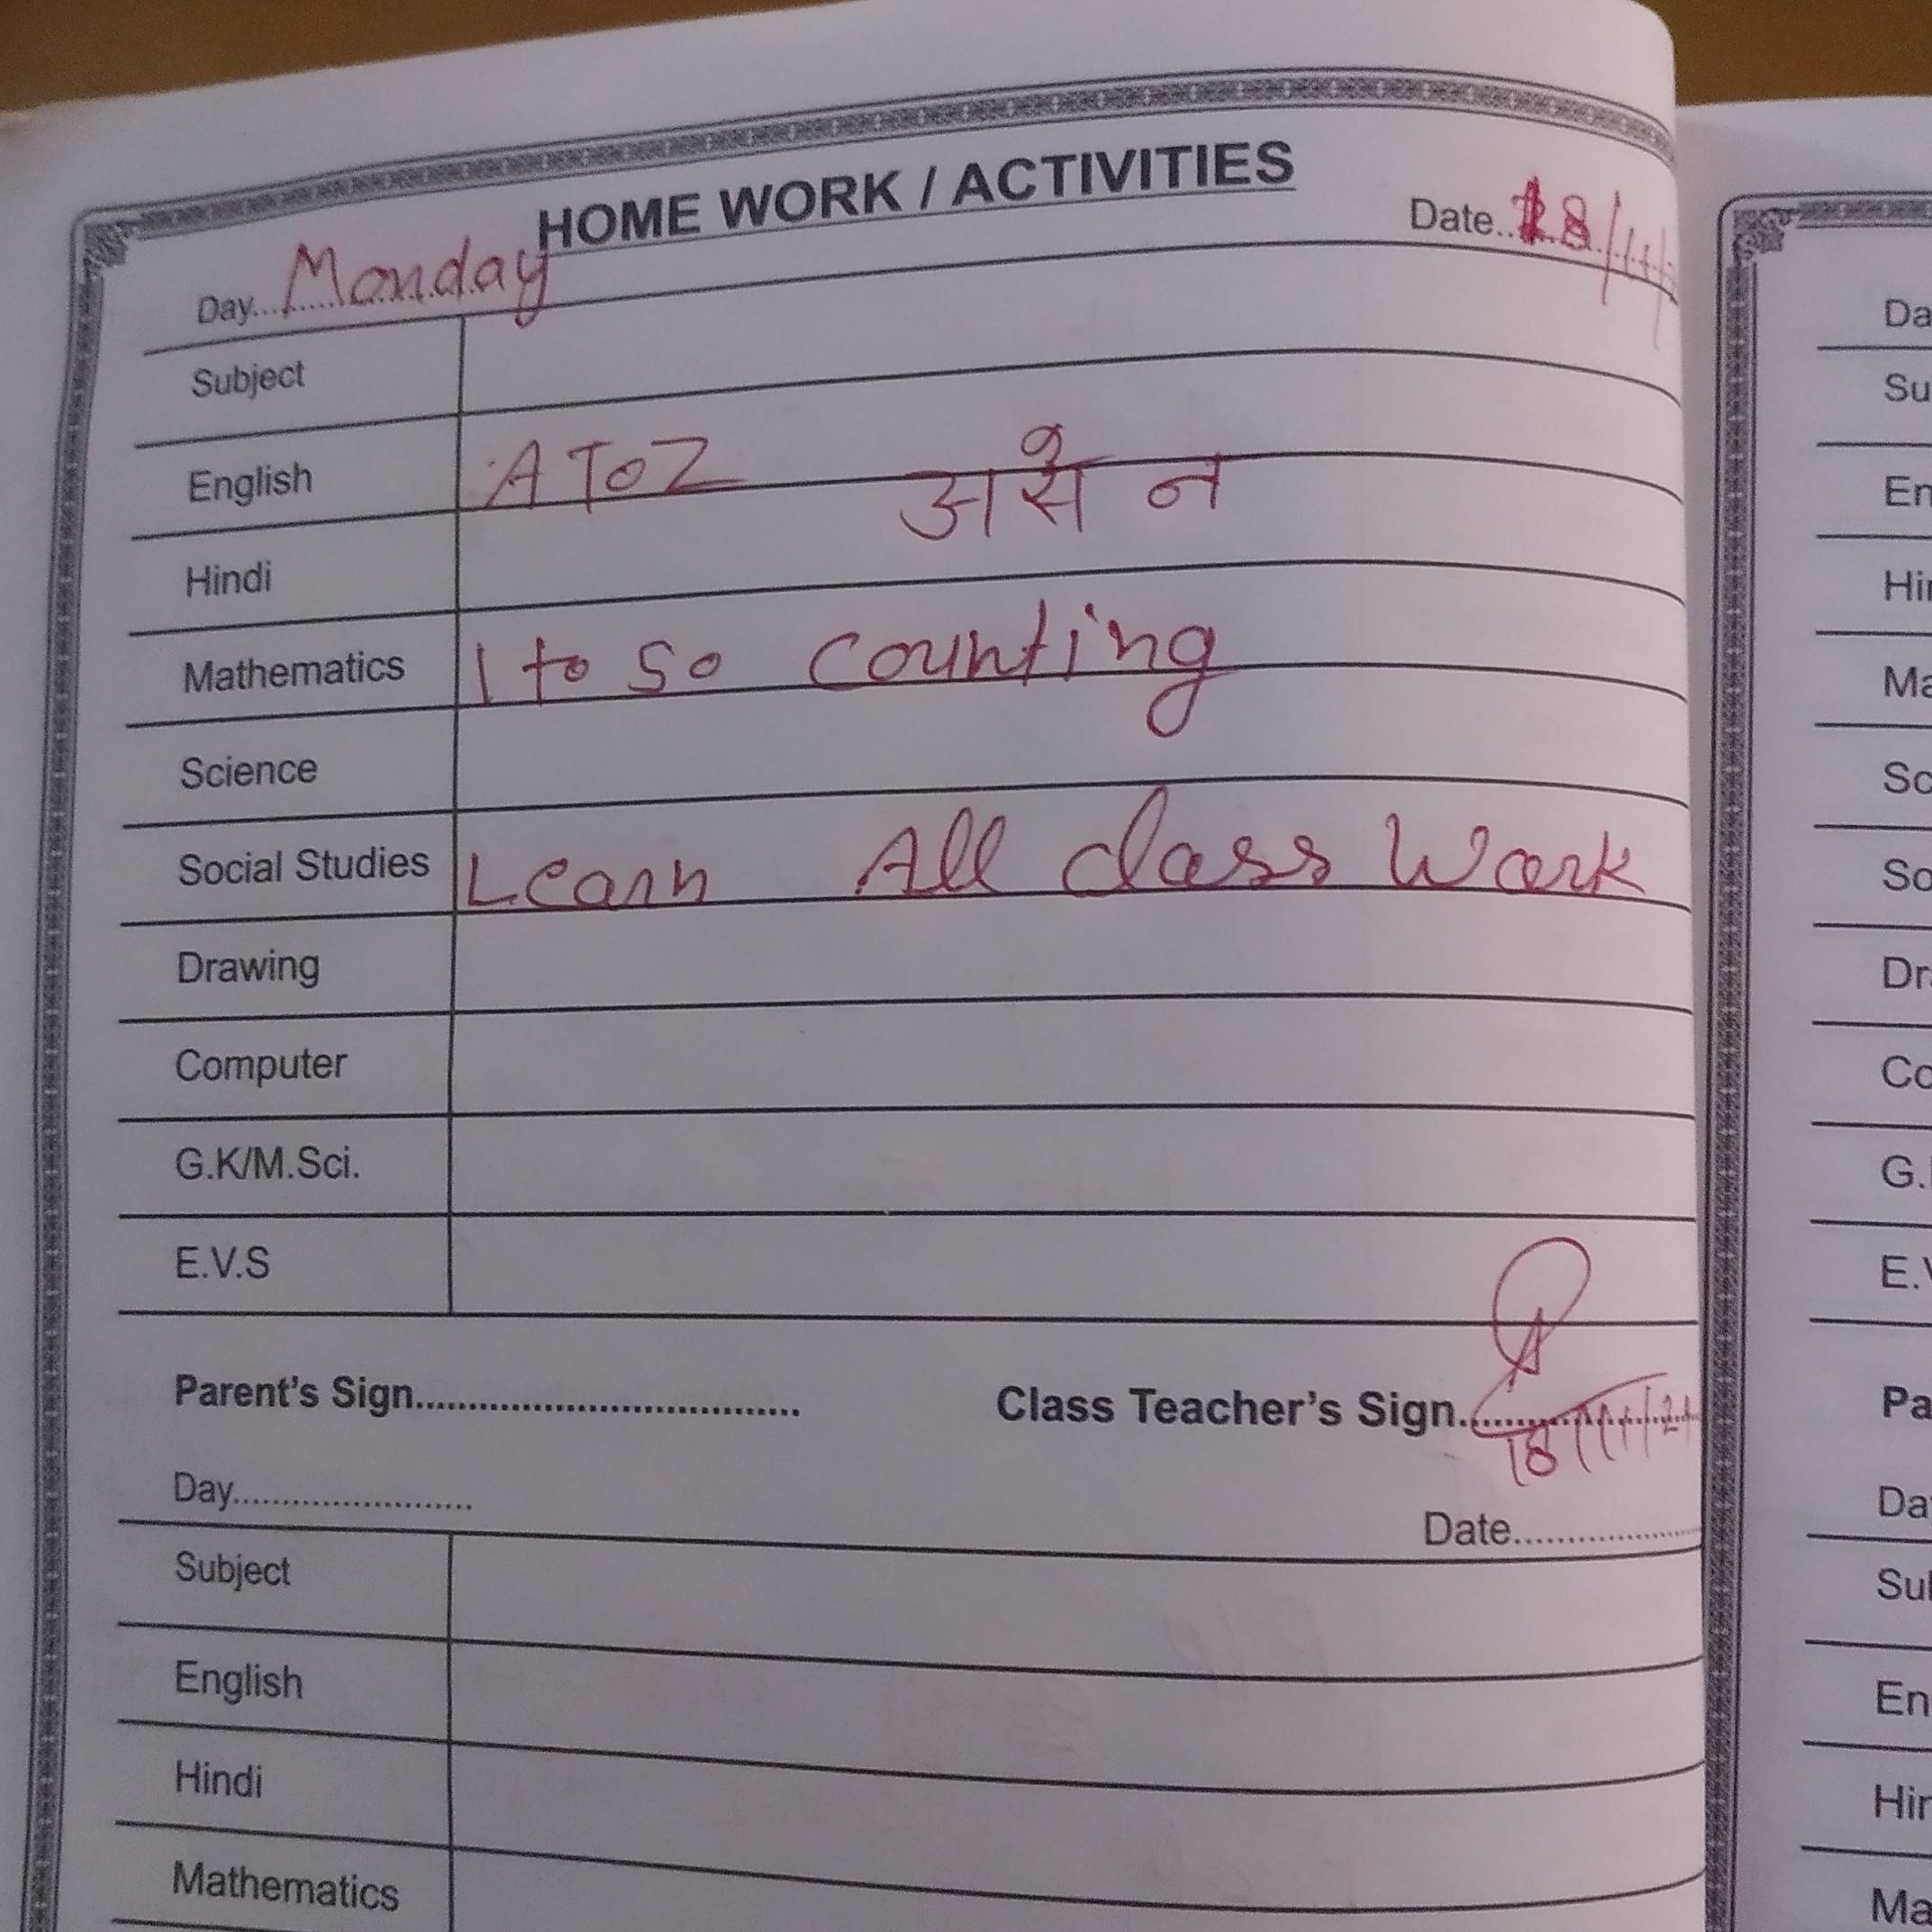 HOME WORK / ACTIVITIES
Day Monday Date 18/11/
Subject
English A To Z
अ से न
Hindi
Mathematics 1 to 50 counting
Science
Social Studies Learn All class Work
Drawing
Computer
G.K/M.Sci.
E.V.S
Parent's Sign Class Teacher's Sign
18/11/24
Day Date
Subject
English
Hindi
Mathematics
Da
Su
En
Hi
Ma
Sc
So
Dr
Co
G.
E.V
Pa
Da
Su
En
Hi
Ma